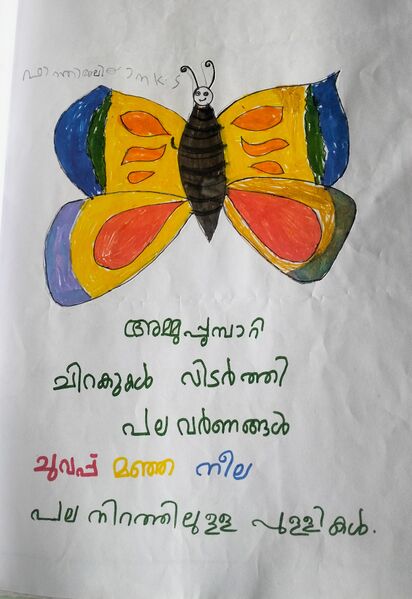 അമ്മുപ്പൂമ്പാറ്റ
ചിറകുകൾ വിടർത്തി
പല വർണങ്ങൾ
ചുവപ്പ് മഞ്ഞ നീല
പല നിറത്തിലുള്ള പുള്ളികൾ.